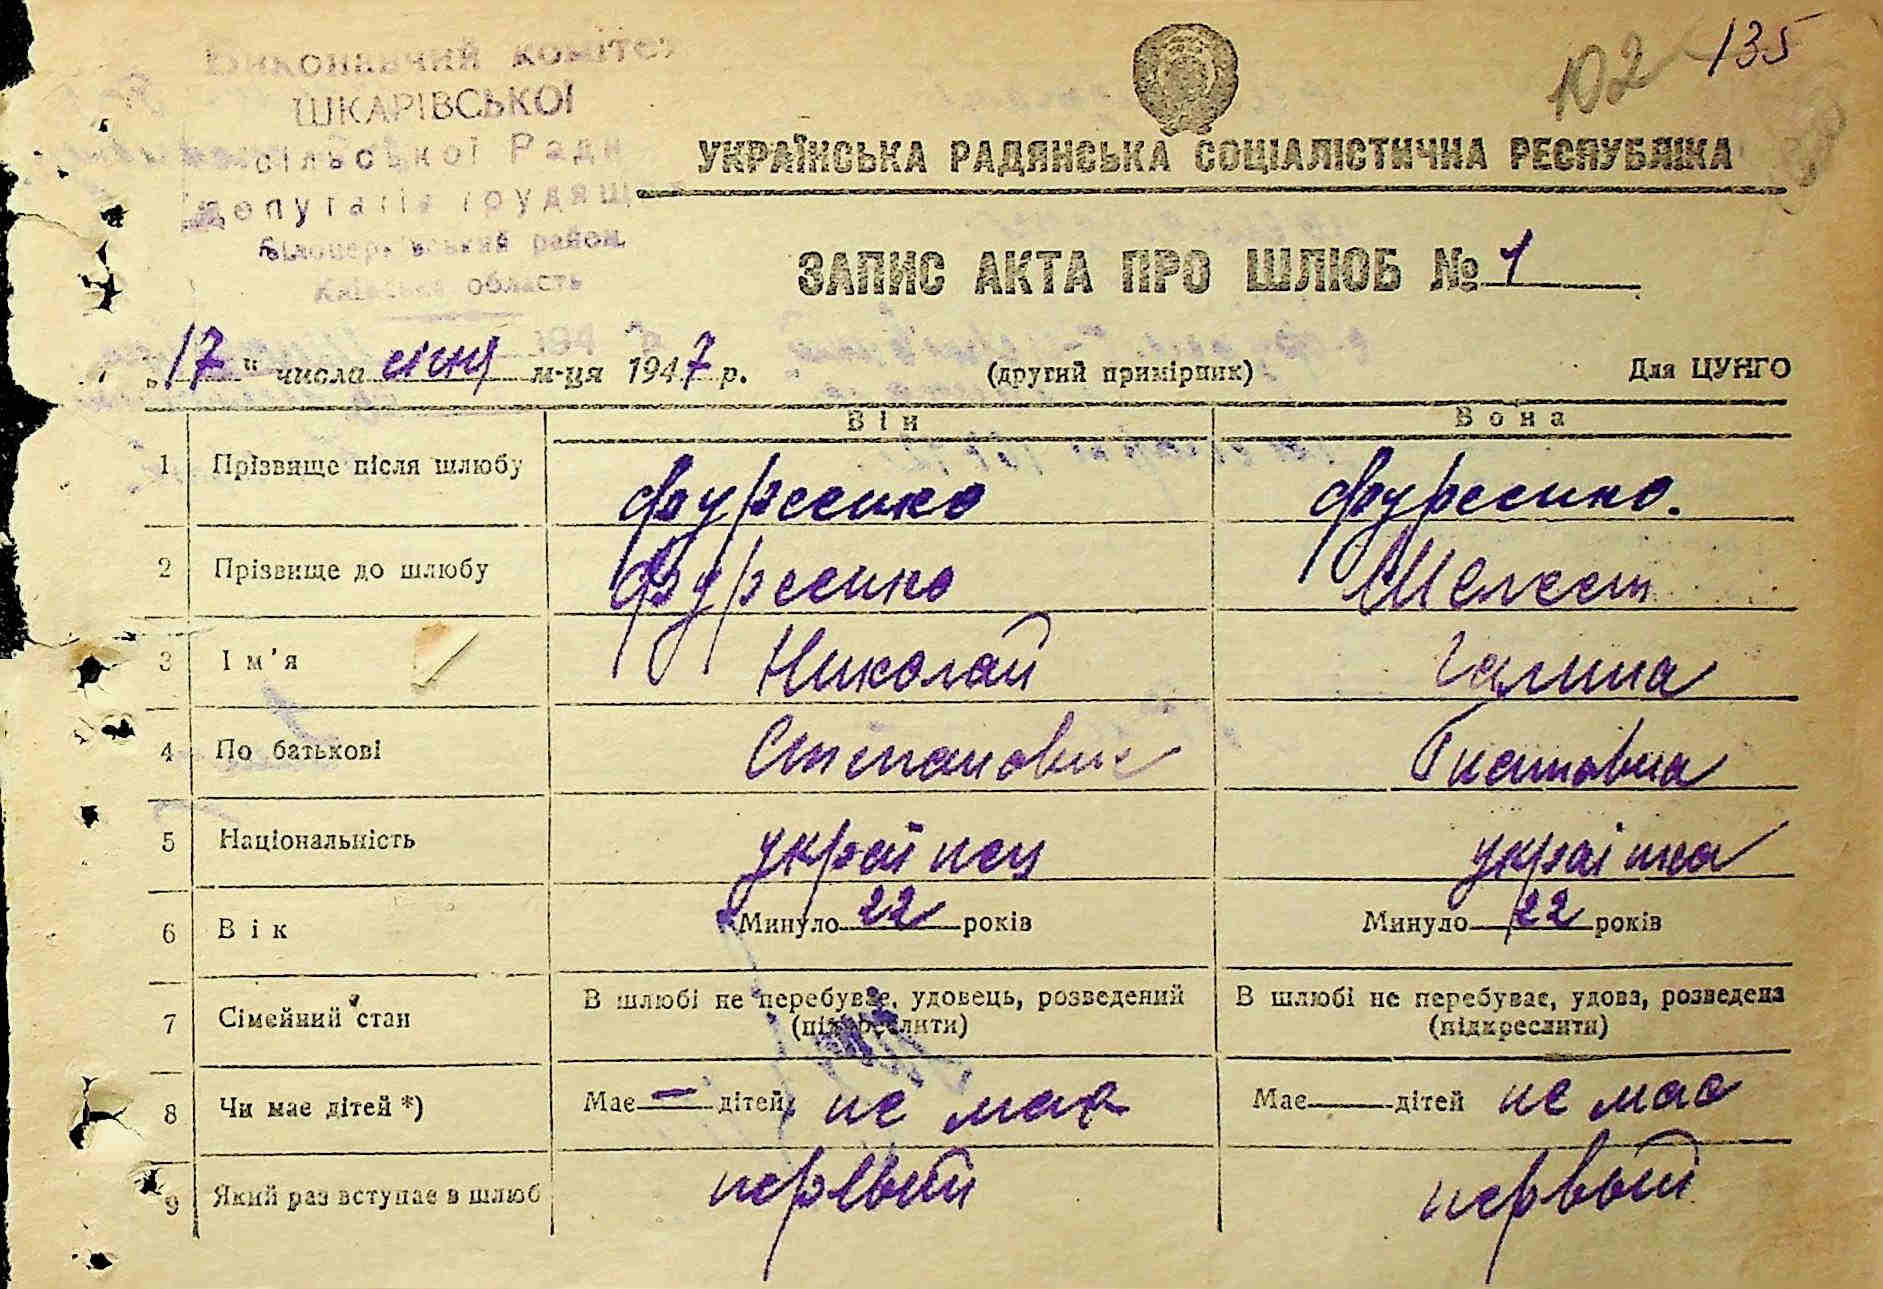 102 135
Виконавчий комітет
ШКАРІВСЬКОЇ
сільської Ради
депутатів трудящ
Білоцерківський район
Київська область
194
УКРАЇНСЬКА РАДЯНСЬКА СОЦІАЛІСТИЧНА РЕСПУБЛІКА
ЗАПИС АКТА ПРО ШЛЮБ № 1
„17" числа січня м-ця 1947 р. (другий примірник) Для ЦУНГО
Він Вона
1 Прізвище після шлюбу Фурсенко Фурсенко.
2 Прізвище до шлюбу Фурсенко Шелест
3 Ім'я Николай Галина
4 По батькові Степанович
5 Національність українец українка
6 Вік Минуло 22 років Минуло 22 років
7 Сімейний стан В шлюбі не перебуває, удовець, розведений В шлюбі не перебуває, удова, розведена
(підкреслити) (підкреслити)
8 Чи має дітей *) Має — дітей, не має Має дітей не має
9 Який раз вступає в шлюб первый первый